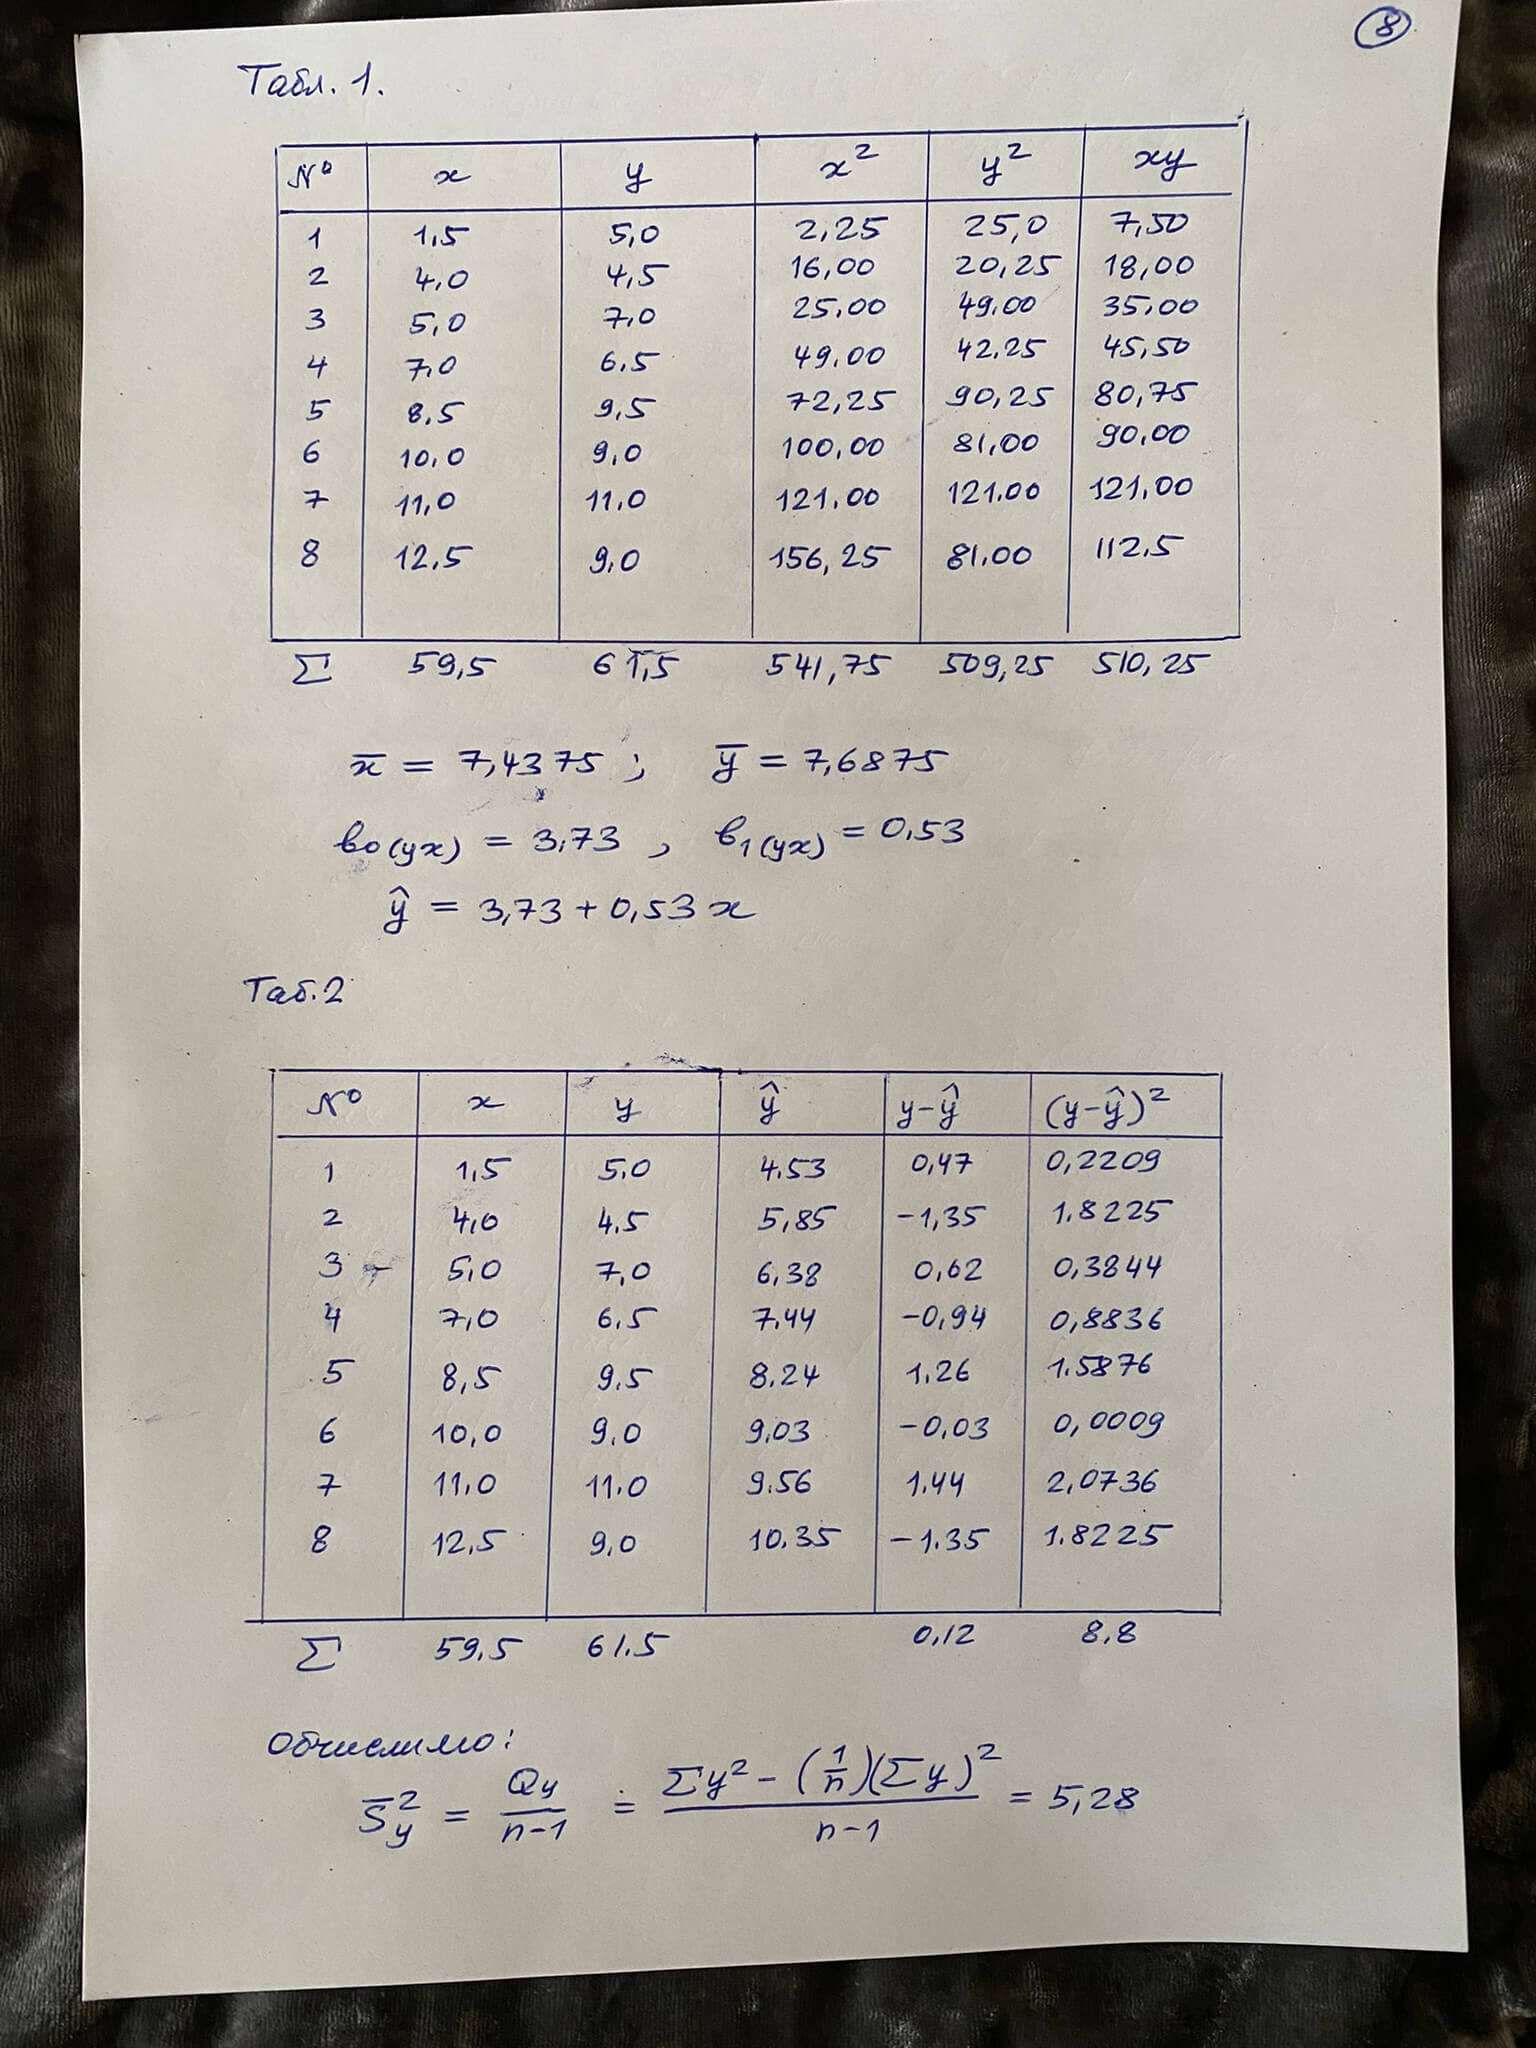 8
Табл. 1.
№ x y x² y² xy
1 1,5 5,0 2,25 25,0 7,50
2 4,0 4,5 16,00 20,25 18,00
3 5,0 7,0 25,00 49,00 35,00
4 7,0 6,5 49,00 42,25 45,50
5 8,5 9,5 72,25 90,25 80,75
6 10,0 9,0 100,00 81,00 90,00
7 11,0 11,0 121,00 121,00 121,00
8 12,5 9,0 156,25 81,00 112,5
Σ 59,5 61,5 541,75 509,25 510,25
x̅ = 7,4375 ; y̅ = 7,6875
в₀(yx) = 3,73 , в₁(yx) = 0,53
ŷ = 3,73 + 0,53 x
Таб.2
№ x y ŷ y-ŷ (y-ŷ)²
1 1,5 5,0 4,53 0,47 0,2209
2 4,0 4,5 5,85 -1,35 1,8225
3 5,0 7,0 6,38 0,62 0,3844
4 7,0 6,5 7,44 -0,94 0,8836
5 8,5 9,5 8,24 1,26 1,5876
6 10,0 9,0 9,03 -0,03 0,0009
7 11,0 11,0 9,56 1,44 2,0736
8 12,5 9,0 10,35 -1,35 1,8225
Σ 59,5 61,5 0,12 8,8
Обчислимо:
S̅²y = Qy/(n-1) = (Σy² - (1/n)(Σy)²)/(n-1) = 5,28